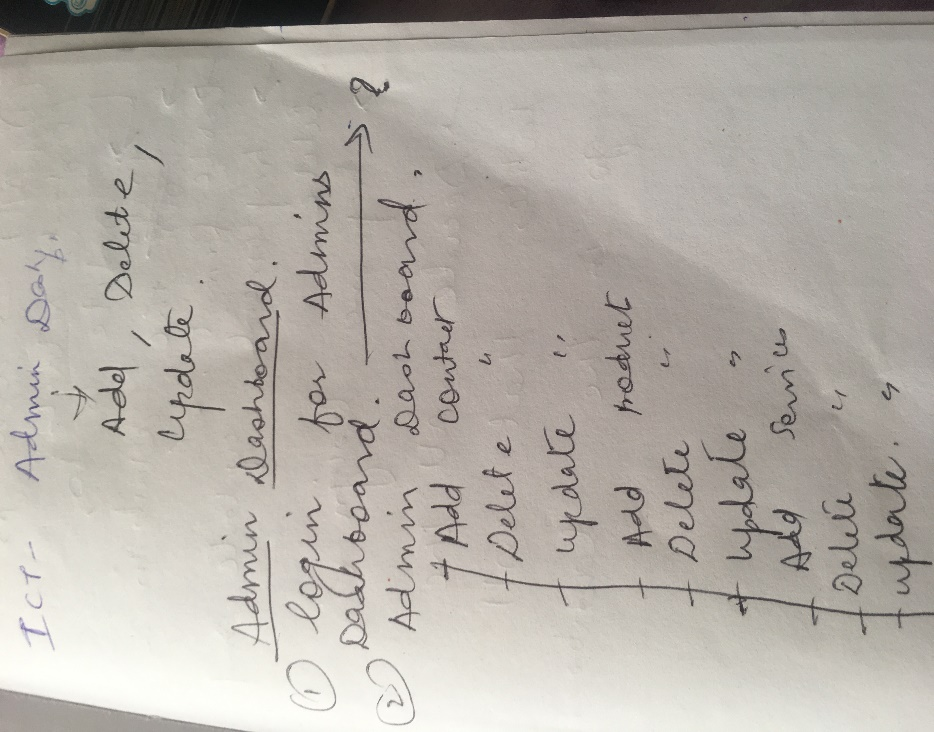 ICT - Admin Dash.
↓
Add, Delete,
update.
Admin Dashboard.
① login for Admins
Dashboard. → 2
② Admin Dashboard,
Add contact
Delete "
update "
Add product
Delete "
update "
Add Services
Delete "
update. "